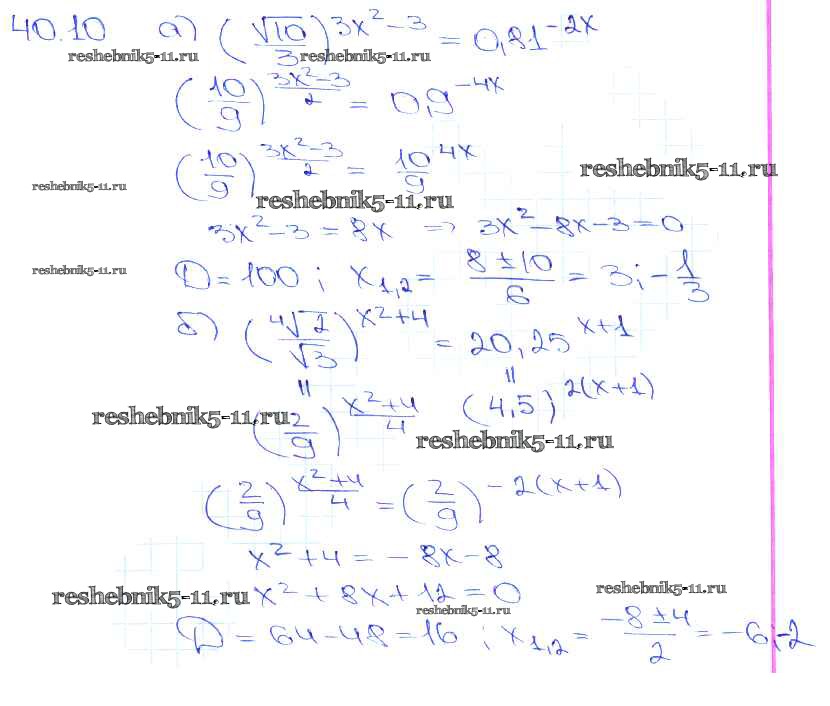 40.10 а) (√10/3)^(3x²-3) = 0,81^(-2x)
reshebnik5-11.ru reshebnik5-11.ru
(10/9)^((3x²-3)/2) = 0,9^(-4x)
(10/9)^((3x²-3)/2) = 10/9^(4x)
reshebnik5-11.ru
reshebnik5-11.ru
reshebnik5-11.ru
3x²-3=8x ⇒ 3x²-8x-3=0
reshebnik5-11.ru
D=100; x₁,₂= (8±10)/6 = 3; -1/3
б) (⁴√2/√3)^(x²+4) = 20,25^(x+1)
= =
(2/9)^((x²+4)/4) (4,5)^(2(x+1))
reshebnik5-11.ru
reshebnik5-11.ru
(2/9)^((x²+4)/4) = (2/9)^(-2(x+1))
x²+4=-8x-8
x²+8x+12=0
reshebnik5-11.ru
reshebnik5-11.ru
reshebnik5-11.ru
D=64-48=16; x₁,₂= (-8±4)/2 = -6;-2